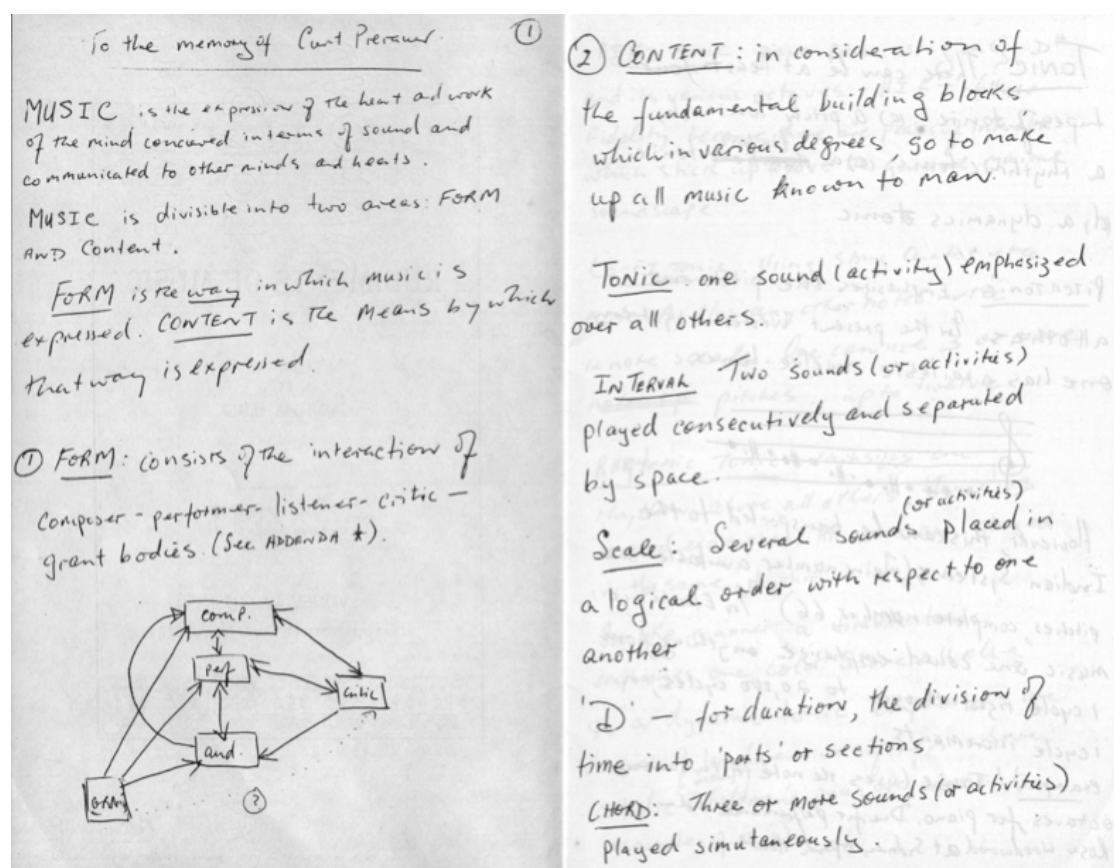 To the memory of Curt Prerauer.
①
MUSIC is the expression of the heart and work
of the mind conceived in terms of sound and
communicated to other minds and hearts.
MUSIC is divisible into two areas: FORM
AND Content.
FORM is the way in which music is
expressed. CONTENT is the means by which
that way is expressed.
① FORM: consists of the interaction of
Composer - performer - listener - critic -
grant bodies. (See ADDENDA *).
comp.
perf
critic
aud.
②
② CONTENT: in consideration of
the fundamental building blocks
which in various degrees go to make
up all music known to man.
TONIC one sound (activity) emphasized
over all others.
INTERVAL Two sounds (or activities)
played consecutively and separated
by space.
(or activities)
Scale: Several sounds placed in
a logical order with respect to one
another
'D' — for duration, the division of
time into 'parts' or sections
CHORD: Three or more sounds (or activities)
played simultaneously.